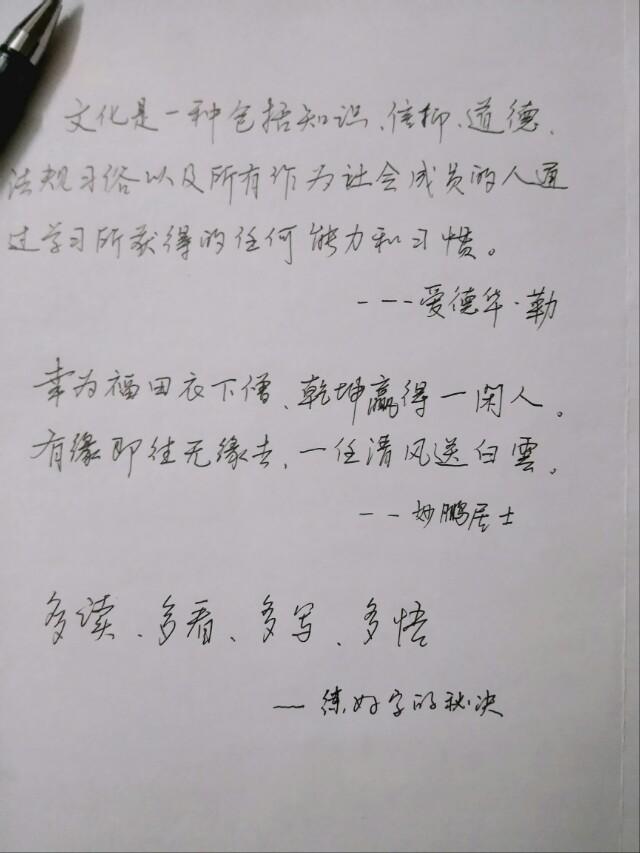 文化是一种包括知识、信仰、道德、
法规习俗以及所有作为社会成员的人通
过学习所获得的任何能力和习惯。
---爱德华·勒
幸为福田衣下僧、乾坤赢得一闲人。
有缘即往无缘去、一任清风送白雲。
--妙鹏居士
多读、多看、多写、多悟
—练好字的秘决